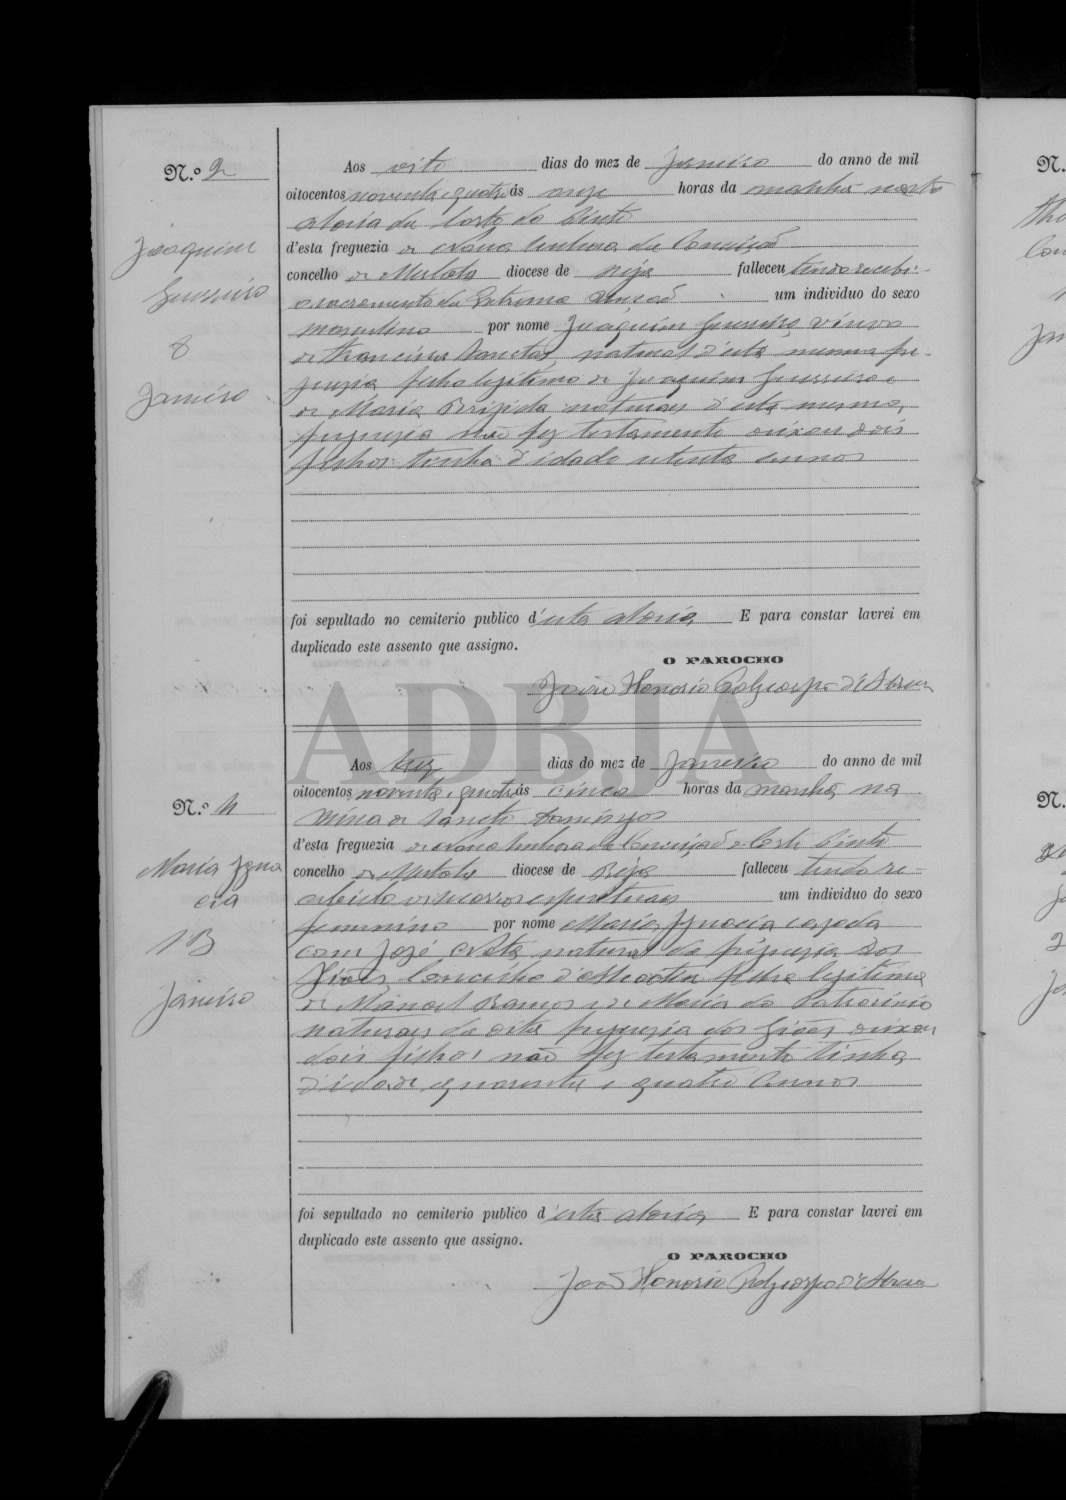 N.º 2
Joaquim
Guerreiro
8
Janeiro
Aos oito dias do mez de Janeiro do anno de mil
oitocentos noventa e quatro ás onze horas da manhã nesta
aldeia da Corte do Pinto
d'esta freguezia de Nossa Senhora da Conceição
concelho de Mertola diocese de Beja falleceu tendo recebi-
o sacramento da Extrema Unção um individuo do sexo
masculino por nome Joaquim Guerreiro, viuvo
de Francisca natural d'esta mesma fre-
guezia filho legitimo de Joaquim Guerreiro e
de Maria Brigida naturaes d'esta mesma
freguezia não fez testamento deixou dois
filhos tinha d'idade setenta annos
foi sepultado no cemiterio publico d'esta aldeia E para constar lavrei em
duplicado este assento que assigno.
O PAROCHO
João Honorio Polycarpo d'Abreu
ADBJA
N.º 4
Maria Igna
cia
13
Janeiro
Aos trez dias do mez de Janeiro do anno de mil
oitocentos noventa e quatro ás cinco horas da manhã na
Mina de Sancto Domingos
d'esta freguezia de Nossa Senhora da Conceição e Corte Pinto
concelho de Mertola diocese de Beja falleceu tendo re-
cebido os socorros espirituaes um individuo do sexo
feminino por nome Maria Ignacia casada
com José natural da freguezia dos
Giões, Concelho d'Alcoutim filha legitima
de Manoel Ramos e de Maria do Patrocinio
naturaes da dita freguezia dos Giões deixou
dois filhos não fez testamento tinha
d'idade quarenta e quatro annos
foi sepultado no cemiterio publico d'esta aldeia E para constar lavrei em
duplicado este assento que assigno.
O PAROCHO
João Honorio Polycarpo d'Abreu
N.
N.